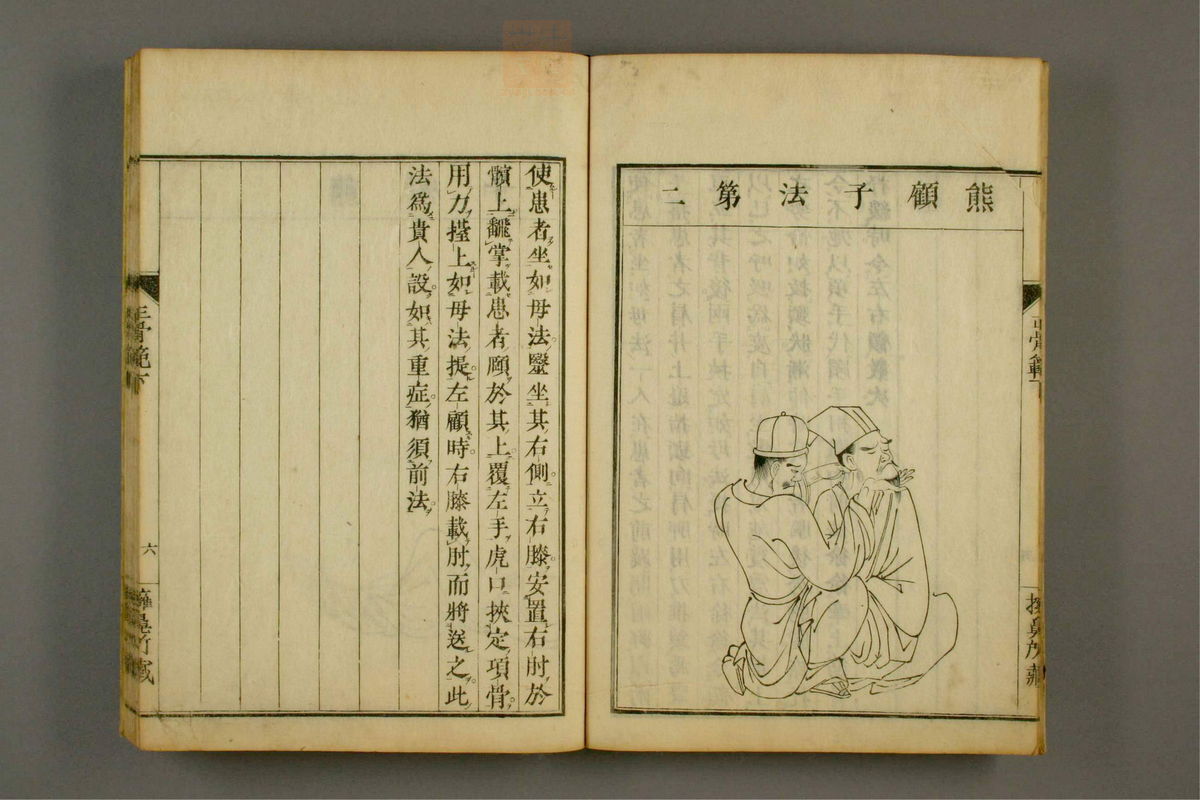 熊顧子法第二
使患者坐如母法。蹙坐其右側。立右膝。安置右肘於
髕上。飜掌載患者頤於其上。覆左手虎口挾定項骨。
用力擡上。如母法。提左顧時。右膝載肘而將送之。此
法爲貴人設。如其重症。猶須前法。
正骨範下
六